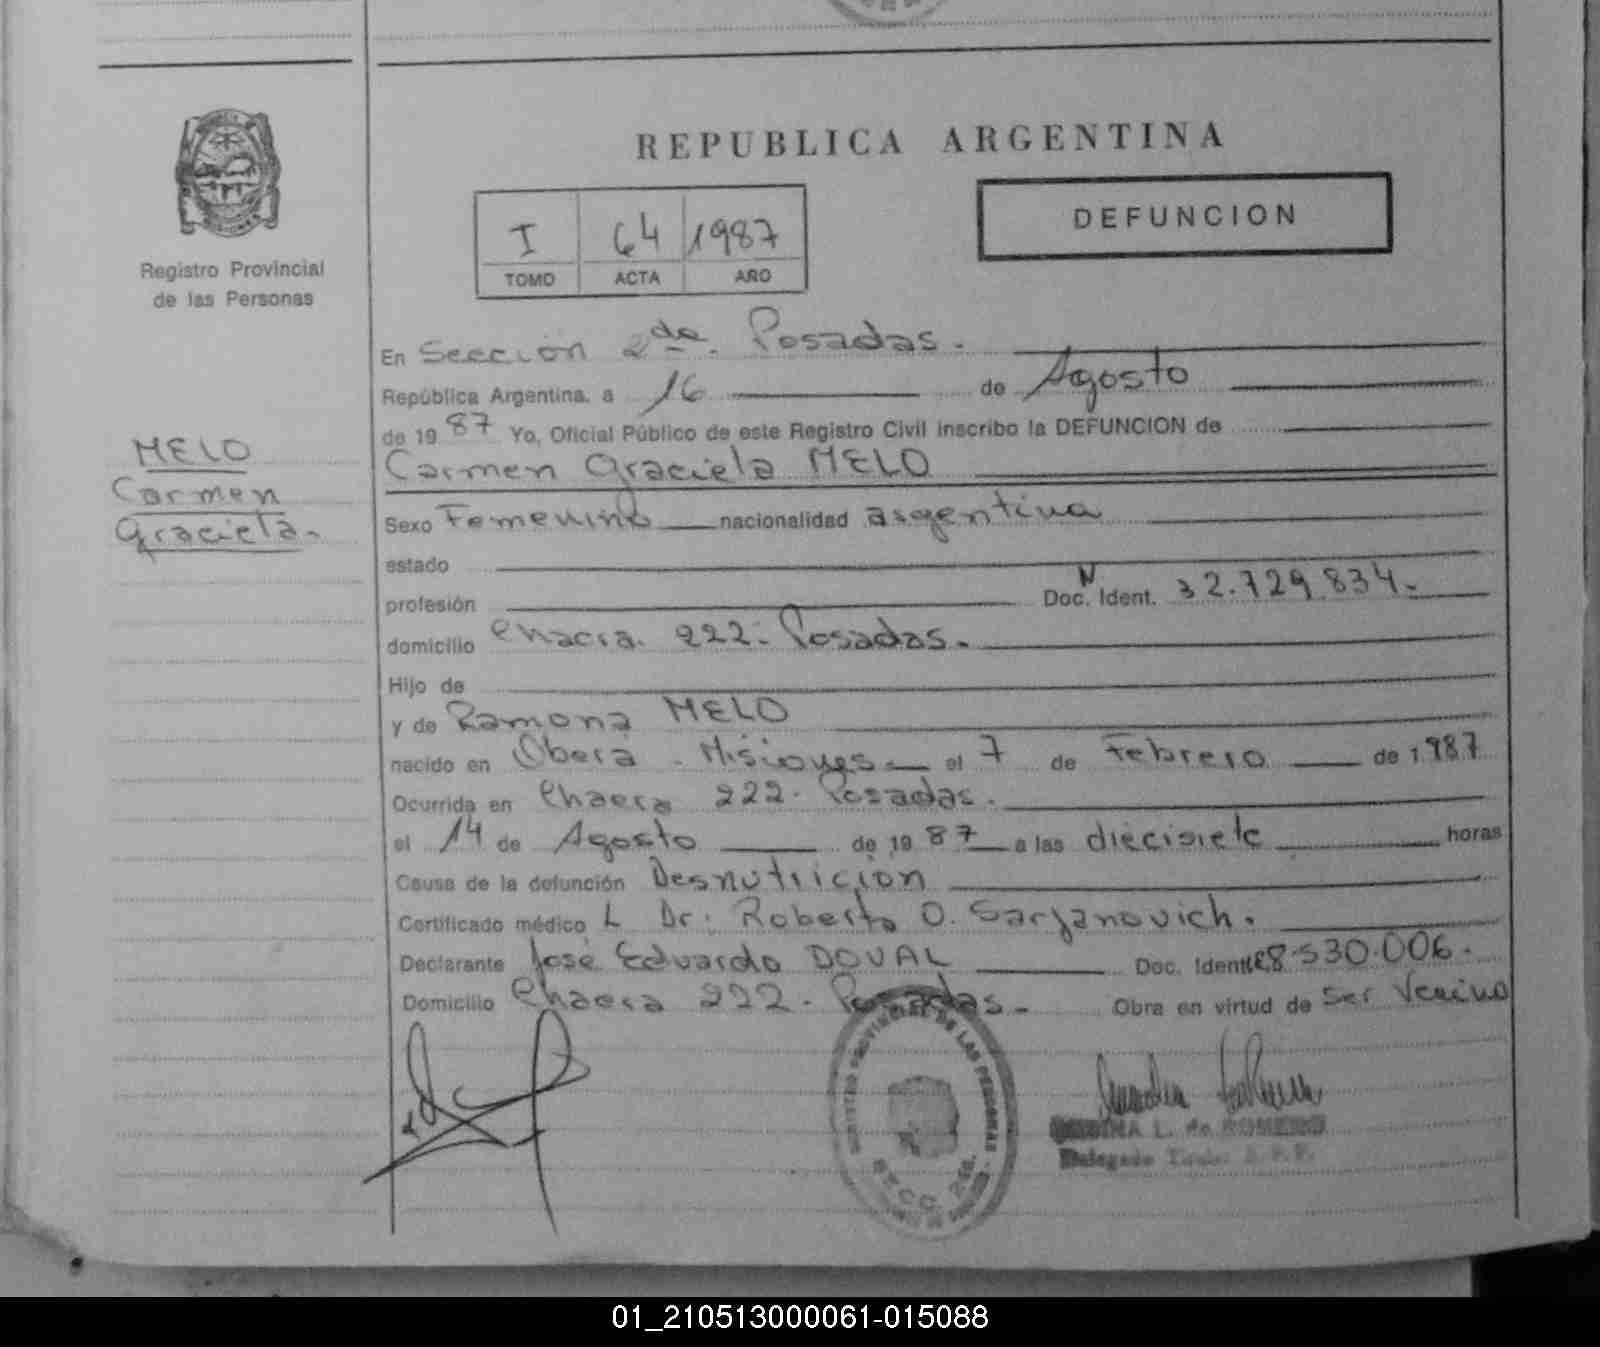 REPUBLICA ARGENTINA
DEFUNCION
I 64 1987
TOMO ACTA AÑO
Registro Provincial
de las Personas
MELO
Carmen
Graciela.
En Sección 2da. Posadas.
República Argentina, a 16 de Agosto
de 1987 Yo, Oficial Público de este Registro Civil inscribo la DEFUNCION de
Carmen Graciela MELO
Sexo Femenino nacionalidad argentina
estado
profesión Doc. N Ident. 32.729.834.
domicilio Chacra. 222. Posadas.
Hijo de
y de Ramona MELO
nacido en Obera - Misiones el 7 de Febrero de 1987
Ocurrida en Chacra 222. Posadas.
el 14 de Agosto de 1987 a las diecisiete horas
Causa de la defunción Desnutrición
Certificado médico L Dr: Roberto O. Sarjanovich.
Declarante José Eduardo DOVAL Doc. Ident. 8.530.006.
Domicilio Chacra 222. Posadas. Obra en virtud de ser Vecino
REGISTRO PROVINCIAL DE LAS PERSONAS
SECC. 2da.
L. de ROMERO
Delegado Titular R.P.P.
01_210513000061-015088